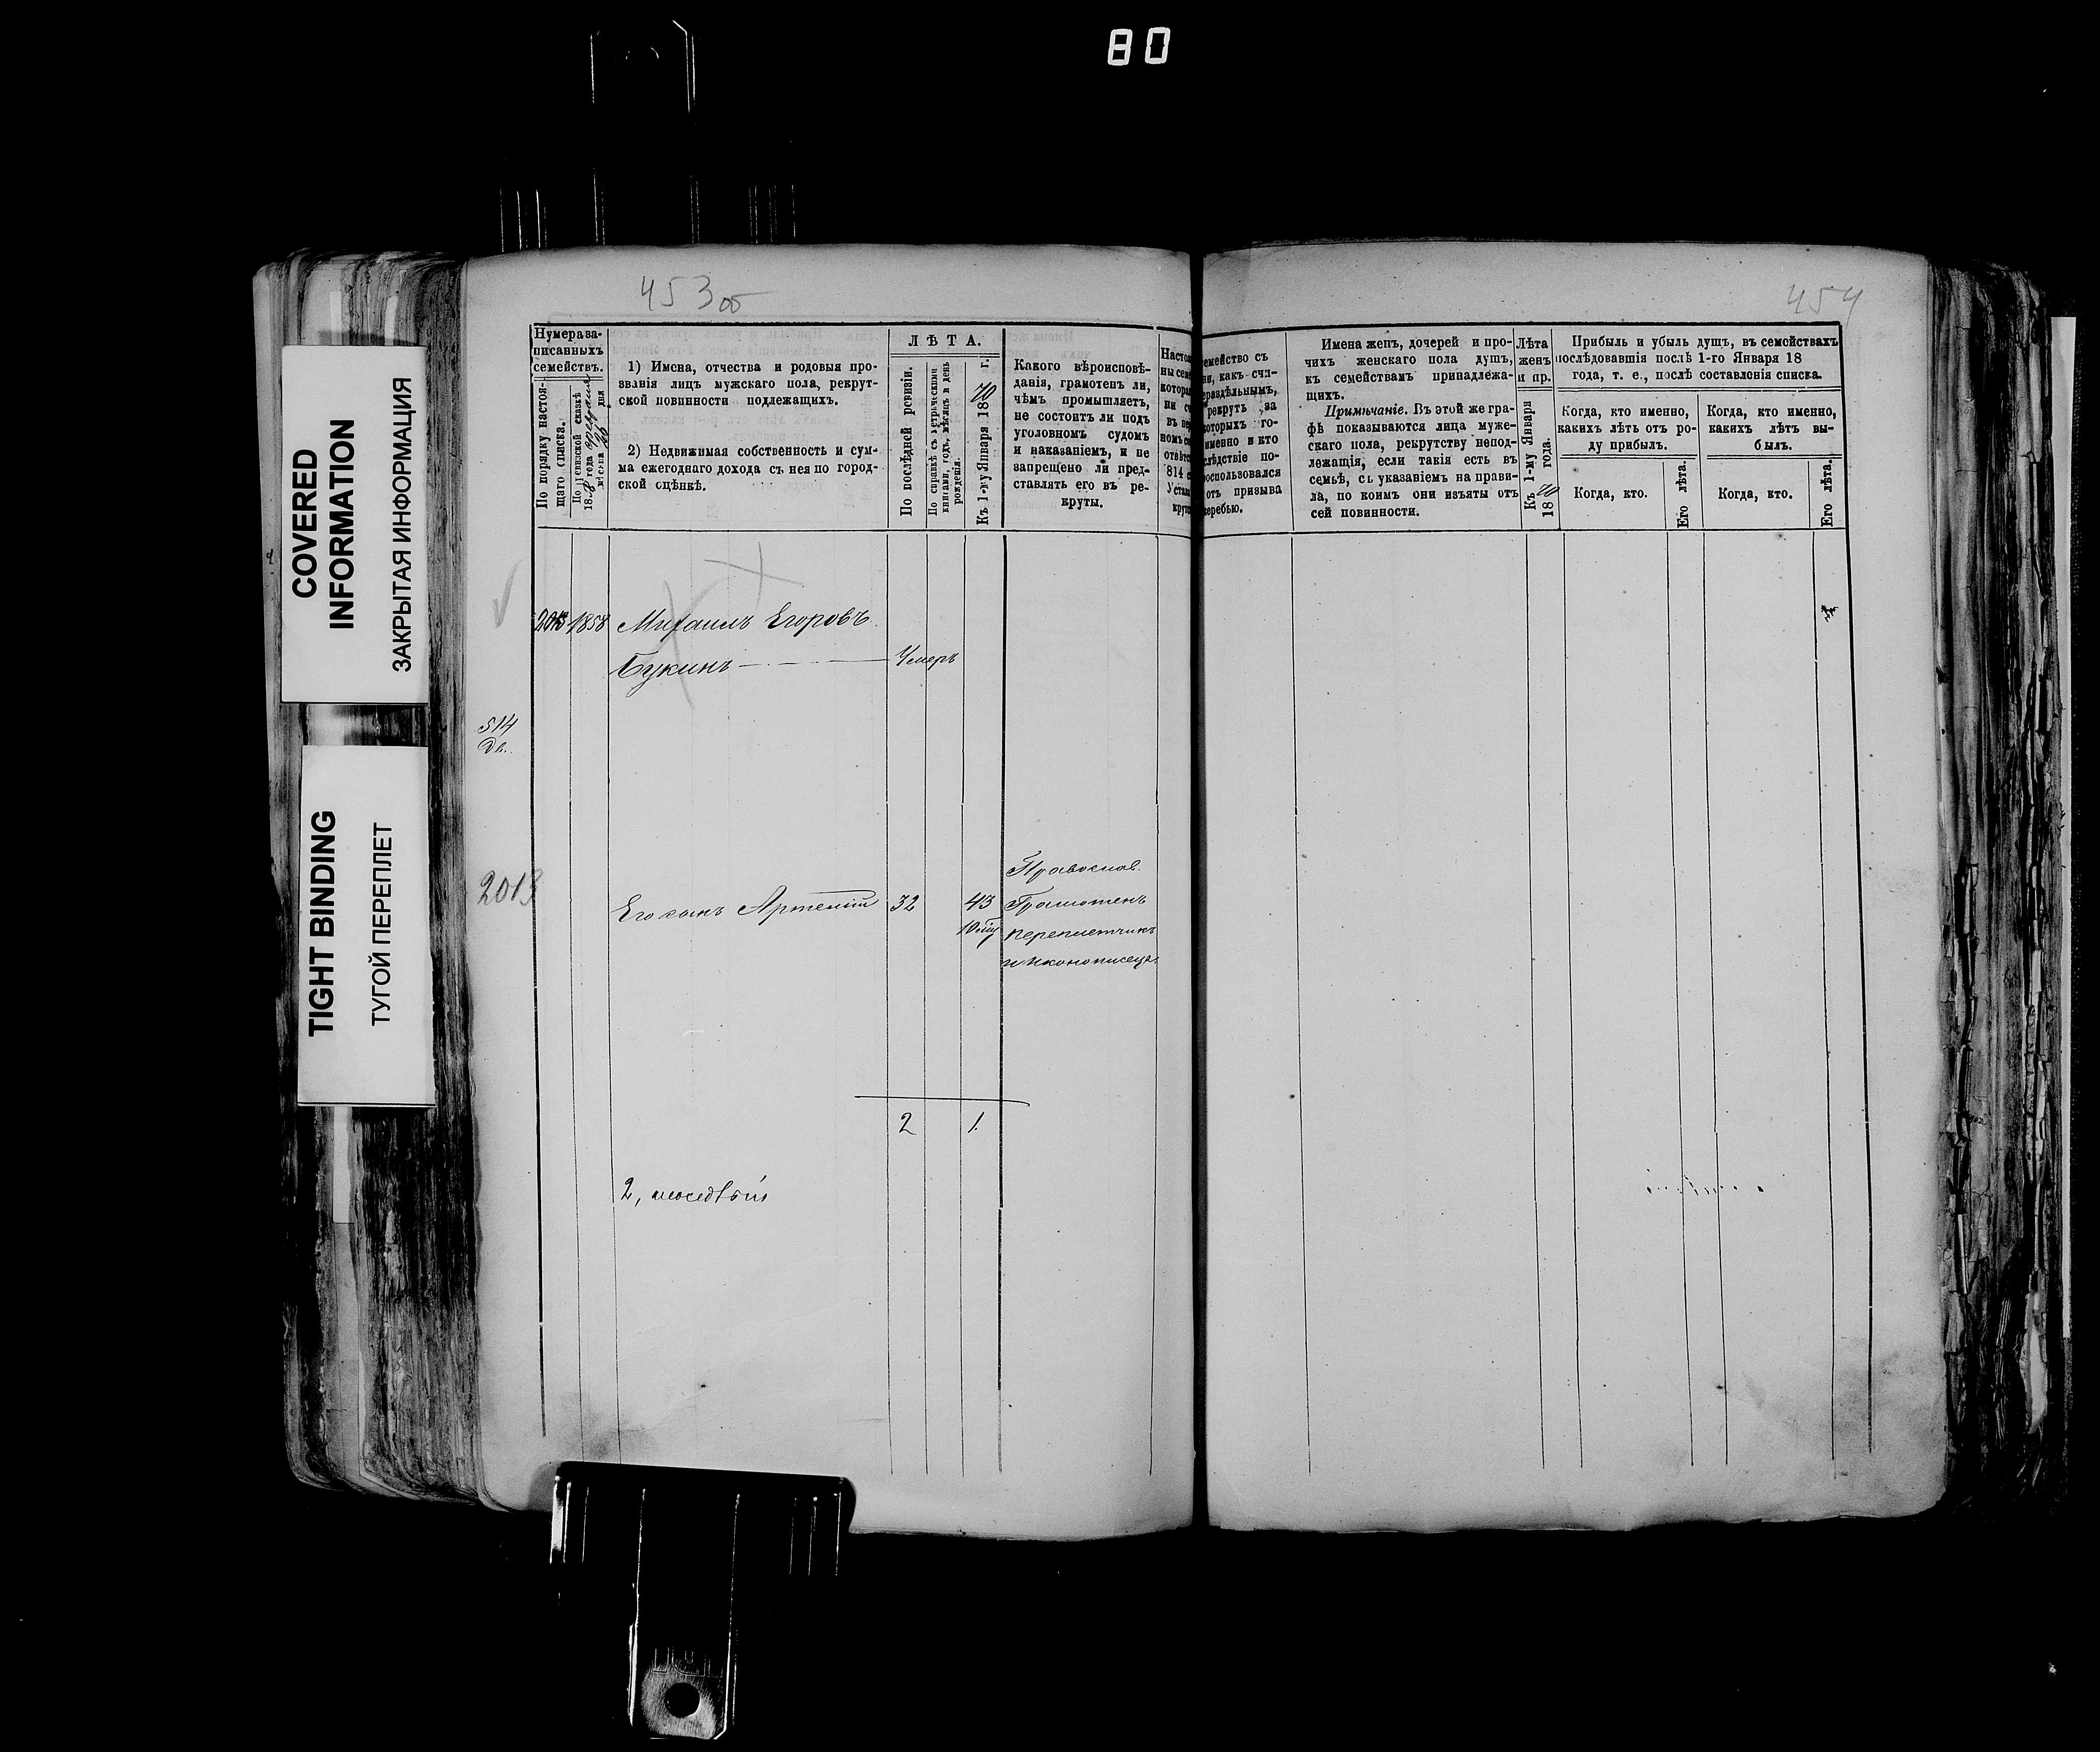 80
COVERED
INFORMATION
ЗАКРЫТАЯ ИНФОРМАЦИЯ
TIGHT BINDING
ТУГОЙ ПЕРЕПЛЕТ
453 об
Нумера за-
писанныхъ
семействъ.
По порядку настоя-
щаго списка.
По ревизской сказкѣ
18 года
мѣсяца дня
1) Имена, отчества и родовыя про-
званія лицъ мужскаго пола, рекрут-
ской повинности подлежащихъ.
2) Недвижимая собственность и сум-
ма ежегоднаго дохода съ нея по город-
ской оцѣнкѣ.
ЛѢТА.
По послѣдней ревизіи.
По справкѣ съ метрическими
книгами, годъ, мѣсяцъ и день
рожденія.
Къ 1-му Января 1870 г.
Какого вѣроисповѣ-
данія, грамотенъ ли,
чѣмъ промышляетъ,
не состоитъ ли подъ
уголовномъ судомъ
и наказаніемъ, и не
запрещено ли пред-
ставлять его въ ре-
круты.
2013 1858 Михаилъ Егоровъ
Букинъ — Умеръ
514
2013
Православ.
Его сынъ Артемій 32 43 Грамотенъ
переплетчикъ
и иконописецъ.
2 1
2,
454
семейство съ
какъ счи-
раздѣльнымъ,
рекрутъ за
которыхъ го-
именно и кто
слѣдствіе по-
воспользовался
отъ призыва
жеребью.
Имена женъ, дочерей и про-
чихъ женскаго пола душъ,
къ семействамъ принадлежа-
щихъ.
Примѣчаніе. Въ этой же гра-
фѣ показываются лица муже-
скаго пола, рекрутству непод-
лежащія, если такія есть въ
семьѣ, съ указаніемъ на прави-
ла, по коимъ они изъяты отъ
сей повинности.
Лѣта
женъ
и пр.
Къ 1-му Января
1870 года.
Прибыль и убыль душъ, въ семействахъ
послѣдовавшія послѣ 1-го Января 18
года, т. е., послѣ составленія списка.
Когда, кто именно,
какихъ лѣтъ отъ ро-
ду прибылъ.
Когда, кто.
Его лѣта.
Когда, кто именно,
какихъ лѣтъ вы-
былъ.
Когда, кто.
Его лѣта.